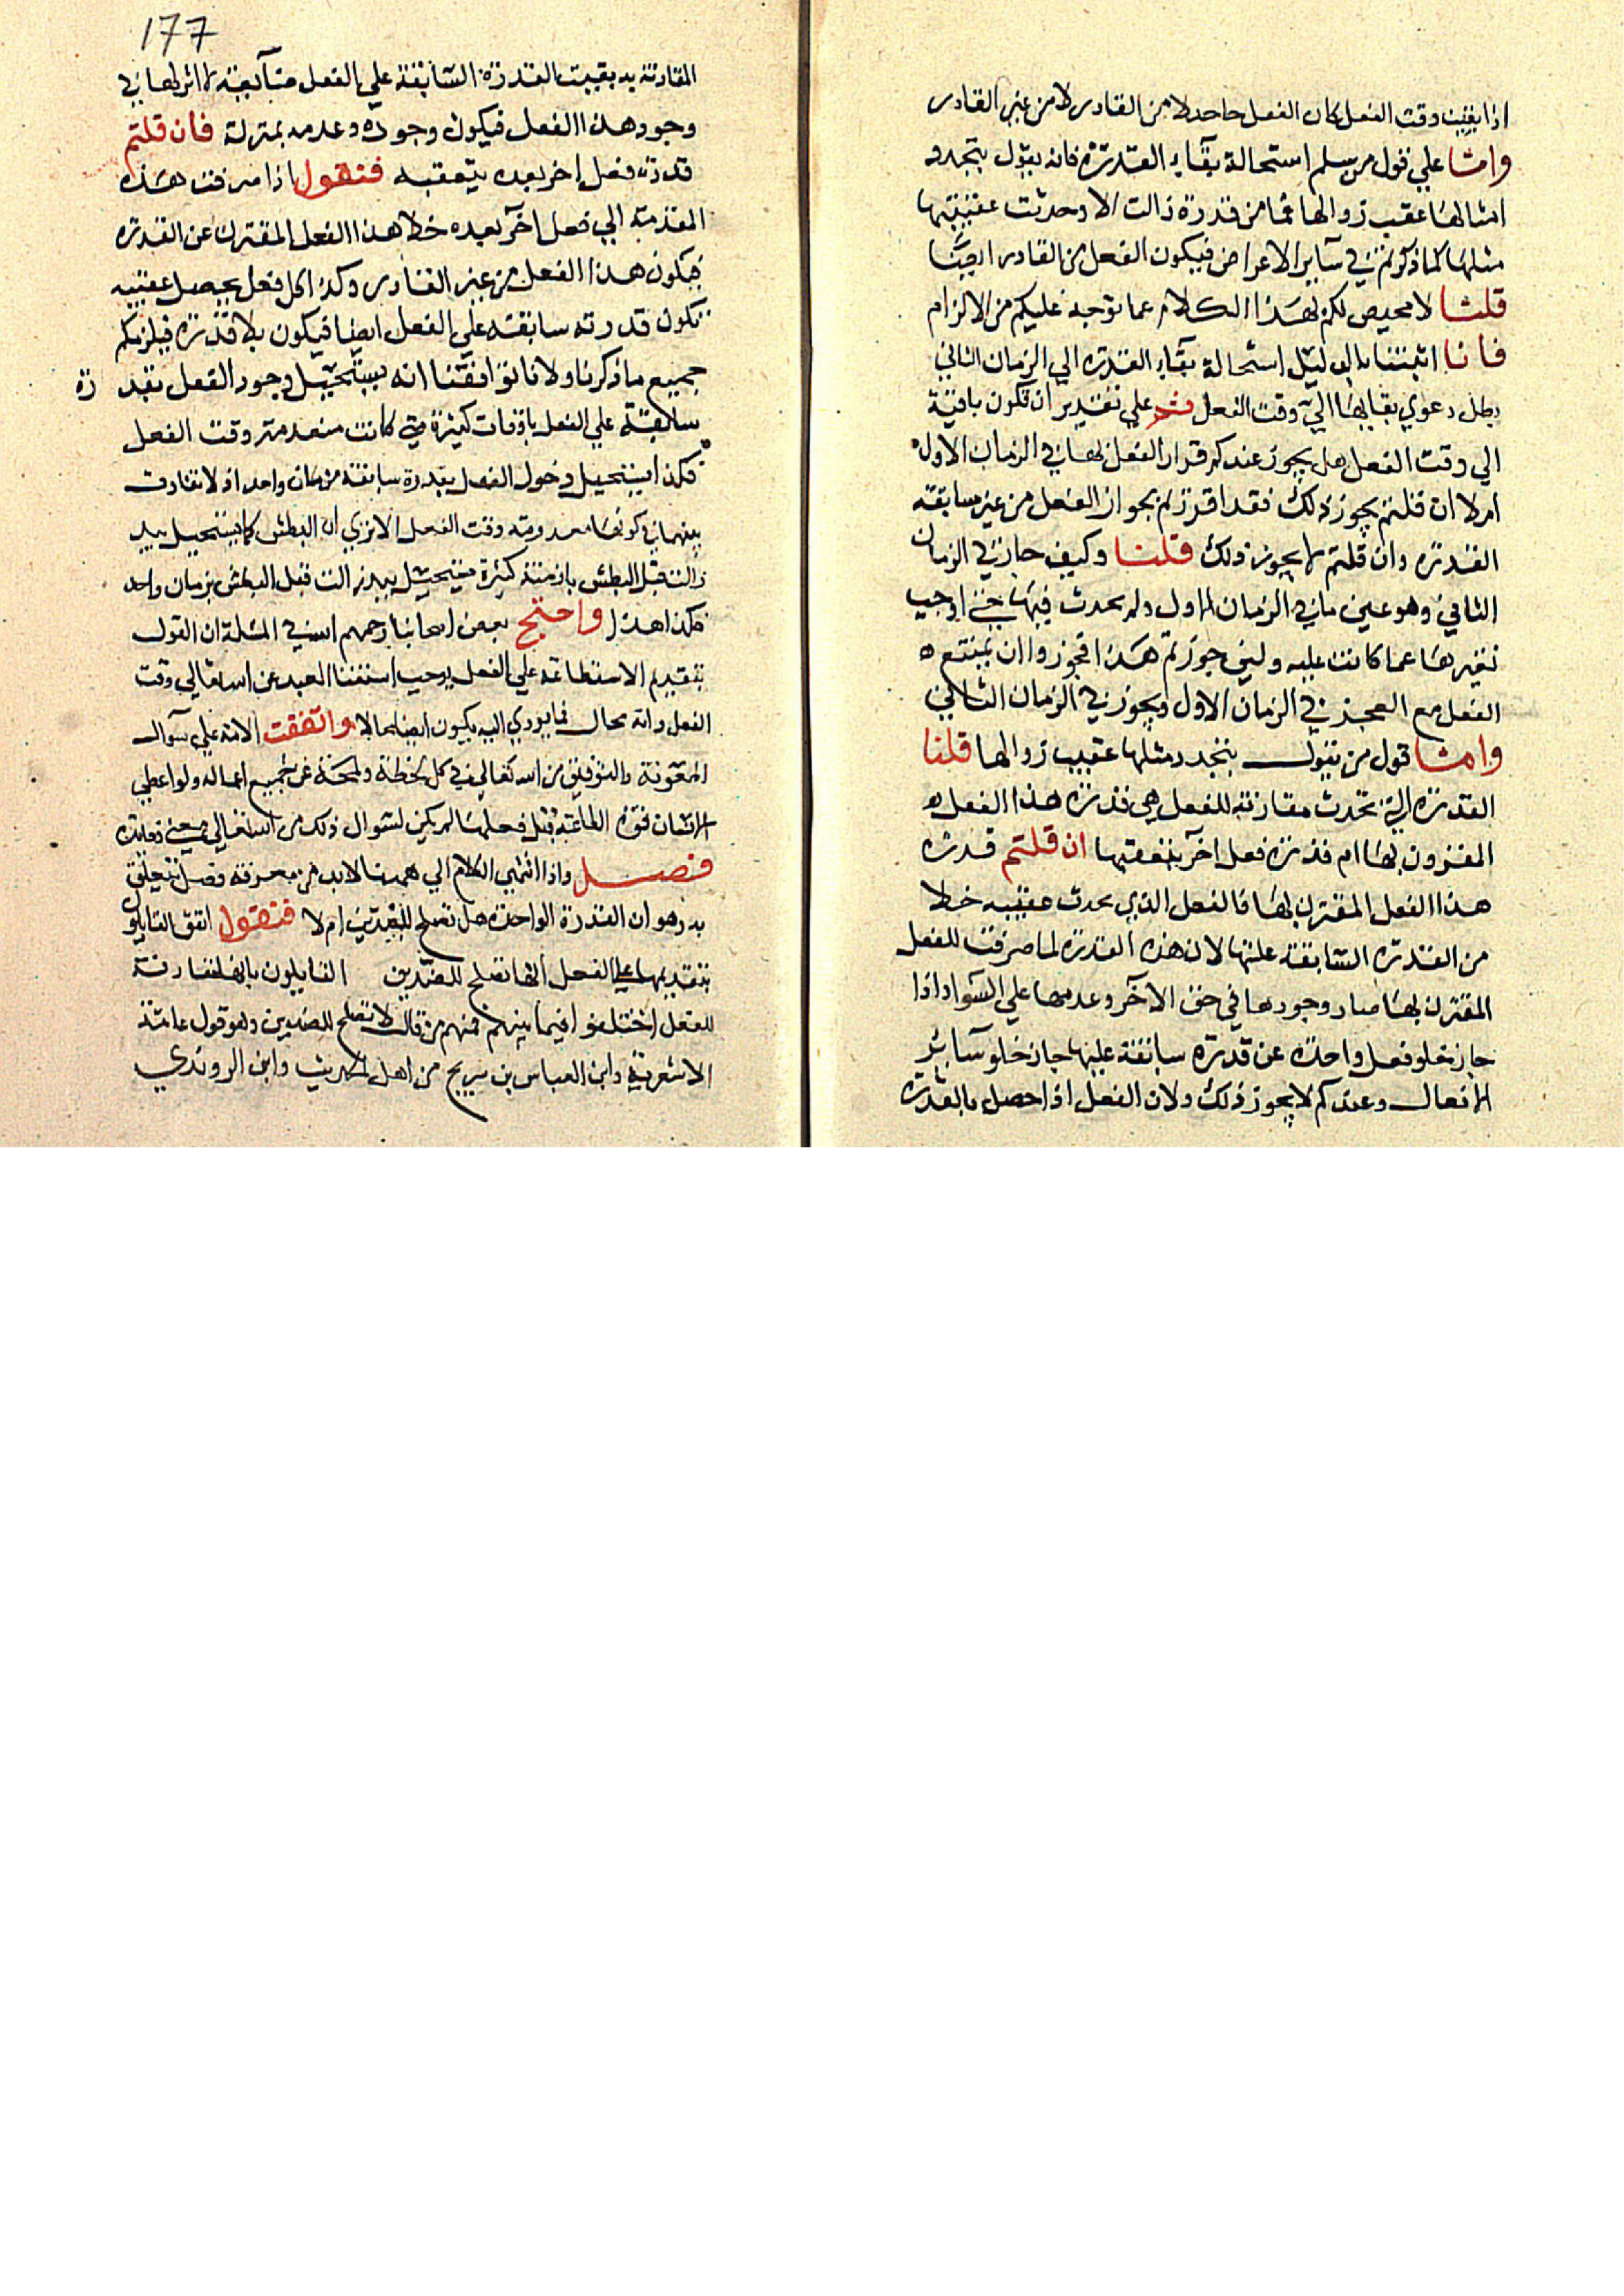 اذا بقيت وقت الفعل كان الفعل حاصلا من القادر لا من غير القادر
واما على قول من سلم استحالة بقاء القدرة فانه يقول بتجدد
امثالها عقيب زوالها فما من قدرة زالت الا وحدثت عقيبها
مثلها كما ذكرتم في ساير الاعراض فيكون الفعل من القادر ايضا
قلنا لا محيص لكم بهذا الكلام عما توجه عليكم من الالزام
فانا اثبتنا بالدليل استحالة بقاء القدرة الي الزمان الثاني
بطل دعوي بقايها الي وقت الفعل ثم علي تقدير ان تكون باقية
الي وقت الفعل هل يجوز عندكم قرار الفعل بها في الزمان الاول
ام لا ان قلتم يجوز ذلك فقد اقررتم بجواز الفعل من غير سابقة
القدرة وان قلتم لا يجوز ذلك قلنا وكيف جاز في الزمان
الثاني وهو عين ما في الزمان الاول ولم يحدث فيها معني اوجب
تغيرها عما كانت عليه ولين جوزتم هذا فجوزوا ان يمتنع
الفعل مع العجز في الزمان الاول ويجوز في الزمان الثاني
واما قول من يقول بتجدد مثلها عقيب زوالها قلنا
القدرة التي تحدث مقارنة للفعل هي قدرة هذا الفعل
المقرون بها ام قدرة فعل اخر يتعقبها ان قلتم قدرة
هذا الفعل المقترن بها فالفعل الذي يحدث عقيبه خلا
من القدرة السابقة عليها لان هذه القدرة لما صرفت للفعل
المقترن بها صار وجودها في حق الآخر وعدمها علي السواء واذا
جاز خلو فعل واحد عن قدرة سابقة عليها جاز خلو سائر
الافعال وعندكم لا يجوز ذلك ولان الفعل اذا حصل بالقدرة
١٧٧
المقارنة به بقيت القدرة السابقة علي الفعل لا اثر لها في
وجود هذا الفعل فيكون وجوده وعدمه بمنزلة فان قلتم
قدرة فعل اخر بعده يتعقبه فنقول اذا صرفت هذه
القدرة الي فعل آخر بعده خلا هذا الفعل المقترن عن القدرة
فيكون هذا الفعل من غير القادر وكذا كل فعل يحصل عقيبه
تكون قدرته سابقة علي الفعل ايضا فيكون بلا قدرة فيلزمكم
جميع ما ذكرنا ولانا توافقنا انه يستحيل وجود الفعل بقدرة
سابقة علي الفعل باوقات كثيرة متي كانت منعدمة وقت الفعل
فكذا يستحيل دخول الفعل بقدرة سابقة زمان واحد اذ لا تفاوت
بينهما في كونها معدومة وقت الفعل الا تري ان البطش كما يستحيل بيد
زالت قبل البطش بازمنة كثيرة يستحيل بيد زالت قبل البطش بزمان واحد
فكذا هذا واحتج بعض اصحابنا رحمهم الله في المسئلة ان القول
بتقديم الاستطاعة علي الفعل يوجب استغناء العبد عن الله تعالي وقت
الفعل وانه محال فما يودي اليه يكون ايضا محالا واتفقت الامة علي سوال
المعونة والتوفيق من الله تعالي في كل لحظة ولمحة في جميع اعماله ولو اعطي
الانسان قوة الطاعة قبل فعلها لم يكن لسوال ذلك من الله تعالي معني وفايدة
فصل واذا انتهي الكلام الي همنا لابد من معرفة فصل يتعلق
به وهو ان القدرة الواحدة هل تصلح للضدين ام لا فنقول اتفق القايلون
بتقديمها علي الفعل انها تصلح للضدين القايلون بانها مقارنة
للفعل اختلفوا فيما بينهم فمنهم من قال لا تصلح للضدين وهو قول عامة
الاشعرية وابن العباس بن سريج من اهل الحديث وابن الروندي